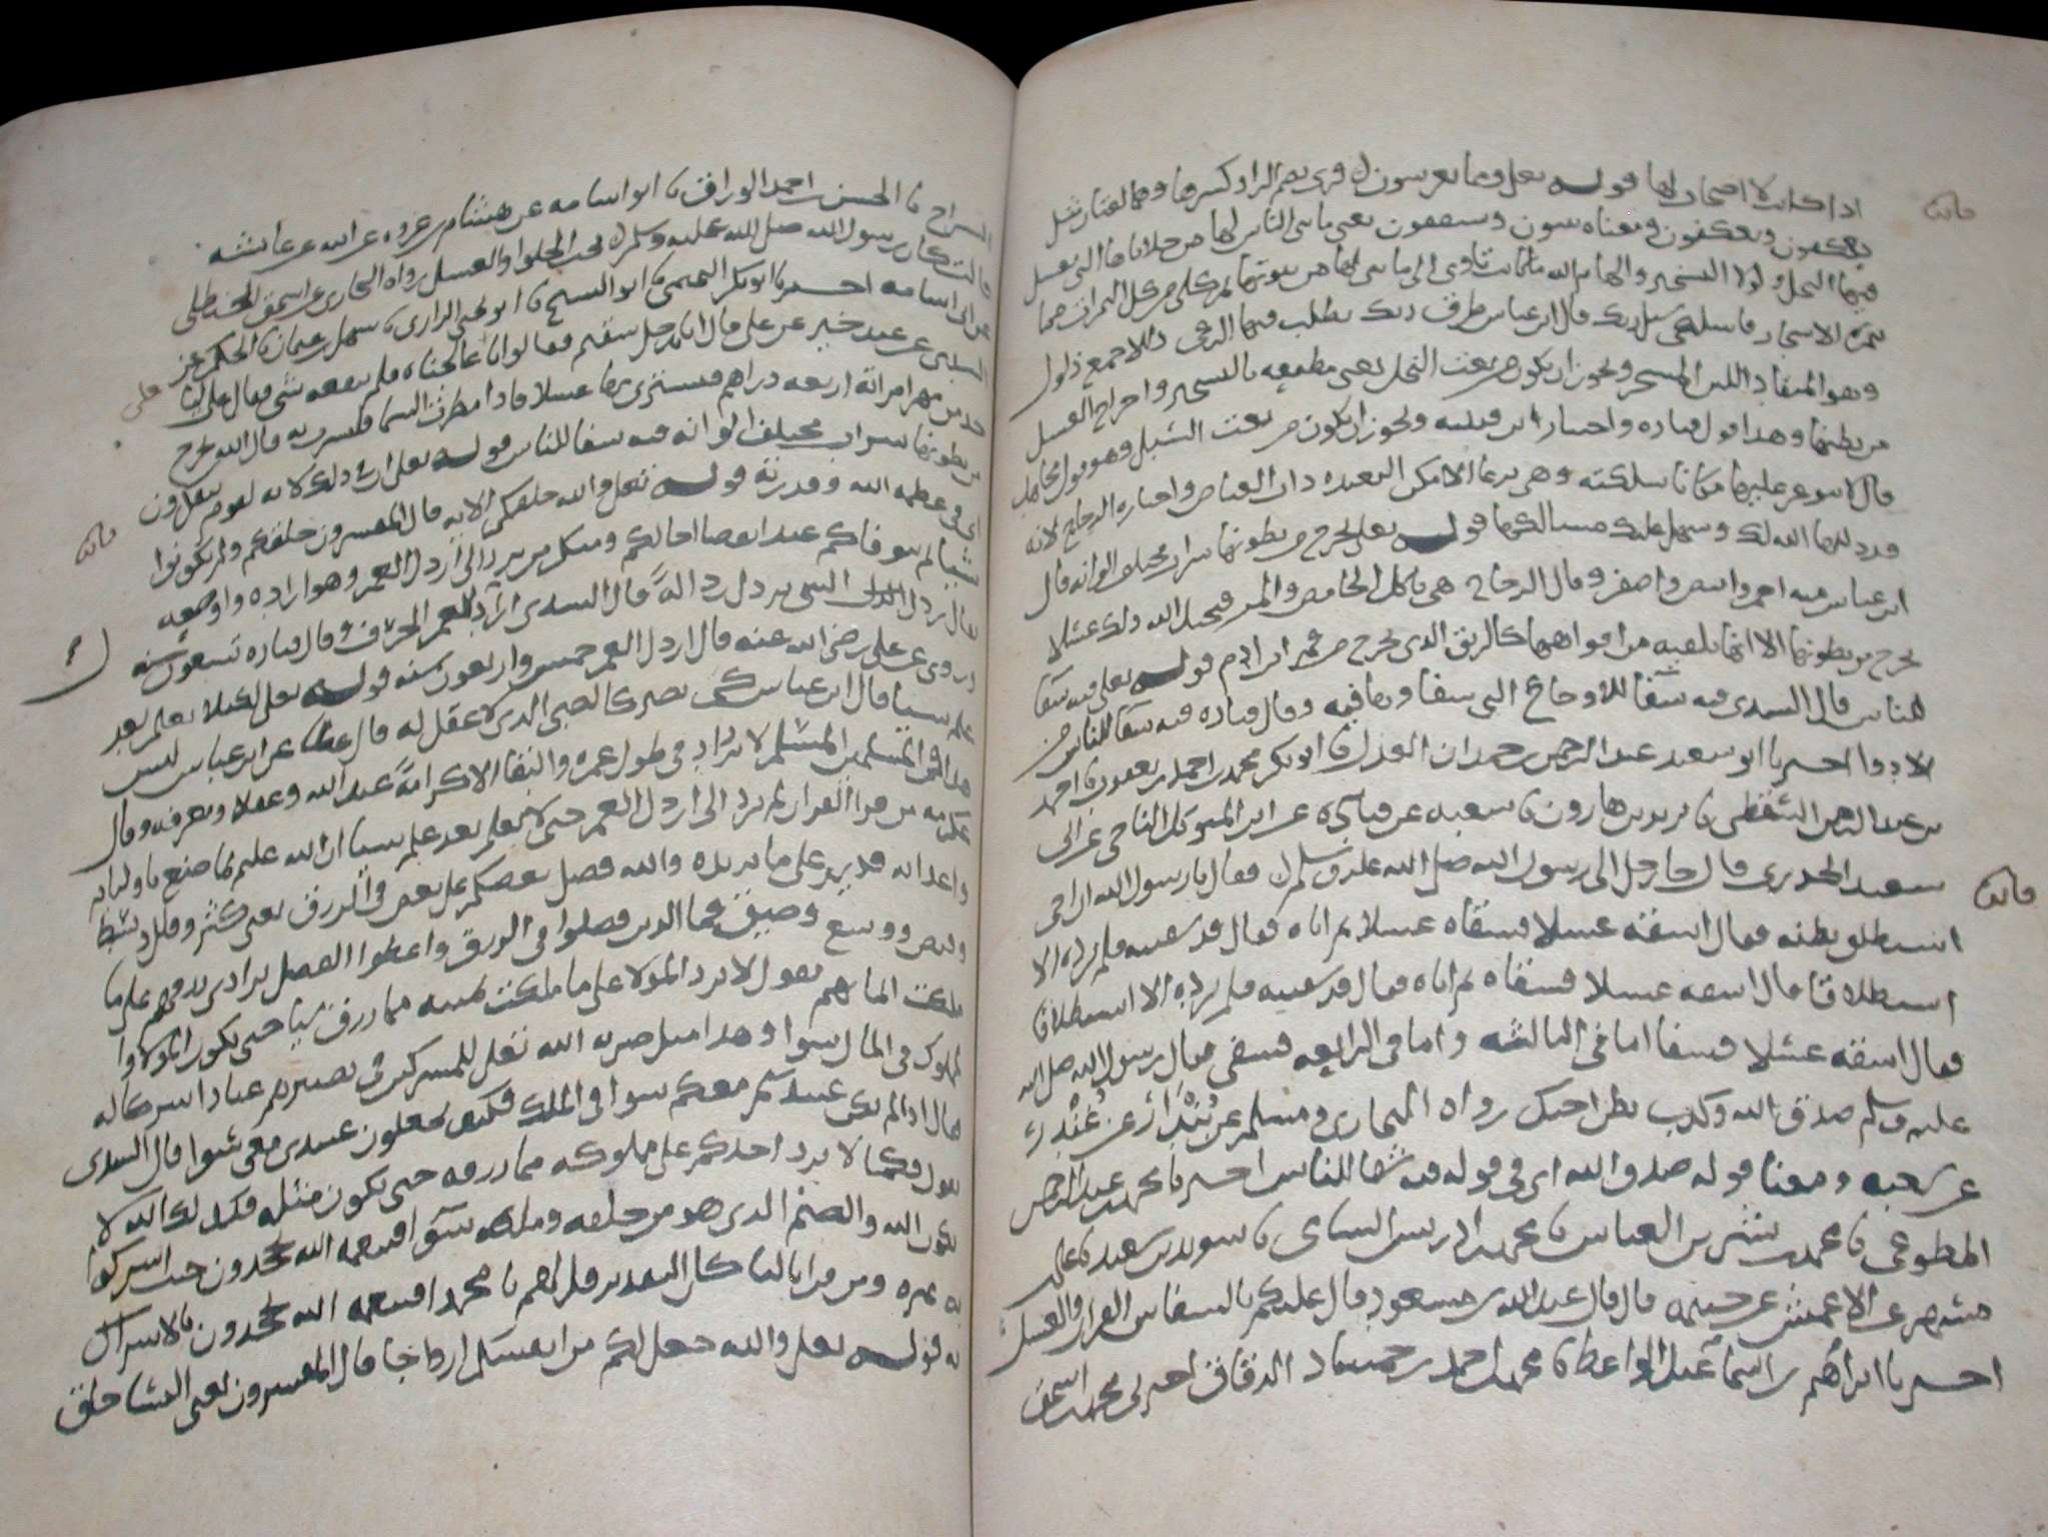 اذا كانت لا اصحاب لها قوله تعلى ومما يعرشون قرى بضم الرا وكسرها وهما لغتان مثل
يعكفون ويعكفون ومعناه يبنون ويسقفون يعنى ما بنى الناس لها من خلاياها التى يعسل
فيها النحل ولولا التسخير والهام الله ما كانت تاوى الى ما بنى لها من بيوتها ثم كلى من كل الثمرات
ثمره الاشجار فاسلكى سبل ربك قال ابن عباس طرق ربك يطلب فيها الرعى ذللا جمع ذلول
وهو المنقاد اللين المسخر ويجوز ان يكون من نعت النحل يعنى مطيعه بالتسخير واخراج العسل
من بطنها وهذا قول قتاده واختيار ابن قتيبه ويجوز ان يكون من نعت السبل وهو قول مجاهد
قال لا يتوعر عليها مكانا سلكته وهى ترعا الاماكن البعيده ذات الغياض واختاره الزجاج لانه
قد ذللها الله لك وسهل عليك مسالكها قوله تعلى يخرج من بطونها شراب مختلف الوانه قال
ابن عباس منه احمر وابيض واصفر وقال الزجاج هى تاكل الحامض والمر فيحيل الله ذلك عسلا
يخرج من بطونها الا انها تلقيه من افواهها كالريق الذى يخرج من فم ابن ادم قوله تعلى فيه شفا
للناس قال السدى فيه شفا للاوجاع التى شفاوها فيه وقال قتاده فيه شفا للناس من
الادوا اخبرنا ابو سعيد عبد الرحمن بن حمدان العدل نا ابو بكر محمد بن احمد بن يعقوب نا احمد
بن عبد الرحمن السقطى نا يزيد بن هارون نا سعيد عن قتاده عن ابى المتوكل الناجى عن ابى
سعيد الخدرى قال جا رجل الى رسول الله صلى الله عليه وسلم فقال يا رسول الله ان اخى
استطلق بطنه فقال اسقه عسلا فسقاه عسلا ثم اتاه فقال قد سقيته فلم يزده الا
استطلاقا قال اسقه عسلا فسقاه ثم اتاه فقال قد سقيته فلم يزده الا استطلاقا
فقال اسقه عسلا فسقا اما فى الثالثه واما فى الرابعه فشفى فقال رسول الله صلى الله
عليه وسلم صدق الله وكذب بطن اخيك رواه البخارى ومسلم عن بُنْدَار عن غُنْدَر
عن شعبه ومعنا قوله صدق الله اى فى قوله فيه شفا للناس اخبرنا محمد بن عبد الرحمن
المطوعى نا محمد بن بشر بن العباس نا محمد بن ادريس السامى نا سويد بن سعيد نا على بن
مسهر عن الاعمش عن خيثمه قال قال عبد الله بن مسعود قال عليكم بالشفاين القران والعسل
اخبرنا ابراهيم بن اسماعيل الواعظ نا محمد بن احمد بن حمشاد الدقاق اخبرنى محمد بن اسحق
قوله
قوله
السراج نا الحسن بن احمد الوراق نا ابو اسامه عن هشام بن عروه عن ابيه عن عائشه
قالت كان رسول الله صلى الله عليه وسلم يحب الحلوا والعسل رواه البخارى عن اسحق الحنظلى
عن ابى اسامه اخبرنا ابو بكر التميمى نا ابو الشيخ نا ابو يحيى الرازى نا سهل بن عثمان نا الحكم عن
السدى عن عبد خير عن على قال اتاه رجل سقيم فقالوا انا عالجناه فلم ينفعه شى فقال على
خد من مهر امراته اربعه دراهم فيشترى بها عسلا فاذا مطرت السما فليشربه قال الله يخرج
من بطونها شراب مختلف الوانه فيه شفا للناس قوله تعلى ان فى ذلك لايه لقوم يتفكرون
اى فى عظمه الله وقدرته قوله تعلى والله خلقكم الايه قال المفسرون خلقكم ولم تكونوا
شيا ثم يتوفاكم عند انقضا اجالكم ومنكم من يرد الى ارذل العمر وهو ارداه واوضعه
يقال رذل الشى يرذل رذالةً قال السدى ارذل العمر الخرف وقال قتاده تسعون سنه
وروى عن على رضى الله عنه قال ارذل العمر خمس وسبعون سنه قوله تعلى لكيلا يعلم بعد
علم شيا قال ابن عباس كى يصير كالصبى الذى لا عقل له قال عطا عن ابن عباس ليس
هذا فى المسلمين المسلم لا يزداد فى طول عمره والبقا الا كرامةً عند الله وعقلا ومعرفه وقال
عكرمه من قرا القران لم يرد الى ارذل العمر حتى لا يعلم بعد علم شيا ان الله عليم بما صنع باوليايه
واعدايه قدير على ما يريده والله فضل بعضكم على بعض فى الرزق يعنى كثر وقلل وبسط
وقبض ووسع وضيق فما الذين فضلوا فى الرزق واعطوا الفضل برادى رزقهم على ما
ملكت ايمانهم يقول لا يرد المولا على ما ملكت يمينه مما رزق شيا حتى يكون المولا وا
لمملوك فى المال سوا وهذا مثل ضربه الله تعلى للمشركين فى تصييرهم عباده شركا له
فقال اذا لم يكن عبيدكم معكم سوا فى الملك فكيف تجعلون عبيدى معى سوا قال السدى
يقول فكما لا يرد احدكم على مملوكه مما رزقه حتى يكون مثله فكذلك الله لا
يكون الله والصنم الذى هو من خلقه وملكه سوا افبنعمه الله يجحدون حيث اشركوا
به غيره ومن قرا بالتا كان التقدير قل لهم يا محمد افبنعمه الله تجحدون بالاشراك
به قوله تعلى والله جعل لكم من انفسكم ازواجا قال المفسرون يعنى النسا خلق
على
قوله